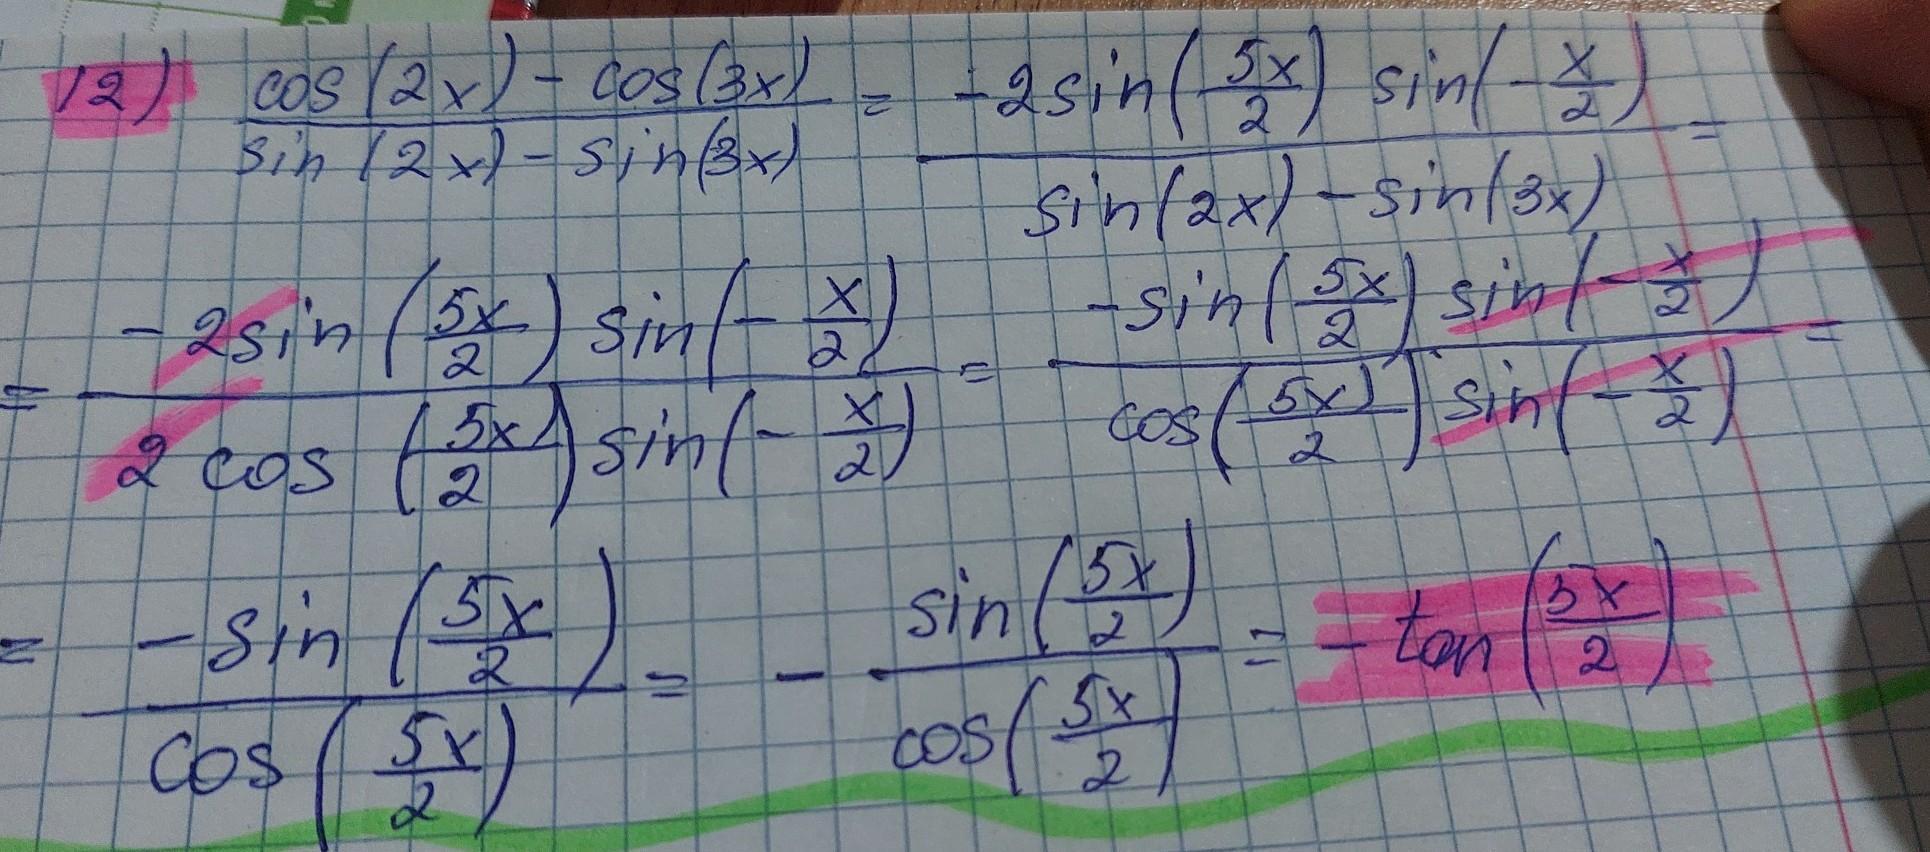 12) cos(2x) - cos(3x) / sin(2x) - sin(3x) = -2sin(5x/2) sin(-x/2) / sin(2x) - sin(3x) =
= -2sin(5x/2) sin(-x/2) / 2 cos(5x/2) sin(-x/2) = -sin(5x/2) sin(-x/2) / cos(5x/2) sin(-x/2) =
= -sin(5x/2) / cos(5x/2) = - sin(5x/2) / cos(5x/2) = -tan(5x/2)